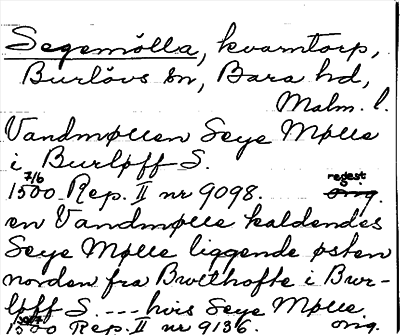 Segemölla, kvarntorp,
Burlövs sn, Bara hd,
Malm. l.
Vandmøllen Seye Mølle
i Burløff S.
7/6
1500 Rep. II nr 9098. regest
orig.
en Vandmølle kaldendes
Seye Mølle liggende østen
norden fra Bwithofte i Bwr-
løff S. --- hvis Seye Mølle
Rep. II nr 9136. orig.